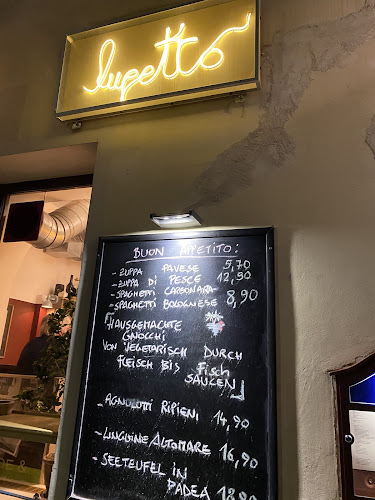 lupetto
BUON APETITO:
- ZUPPA PAVESE 5,70
- ZUPPA DI PESCE 12,50
- SPAGHETTI CARBONARA
- SPAGHETTI BOLOGNESE 8,90
HAUSGEMACHTE
GNOCCHI
VON VEGETARISCH DURCH
FLEISCH BIS FISCH
SAUCEN
- AGNOLOTTI RIPIENI 14,90
- LINGUINE ALTOMARE 16,90
- SEETEUFEL IN
PADELA 18,90